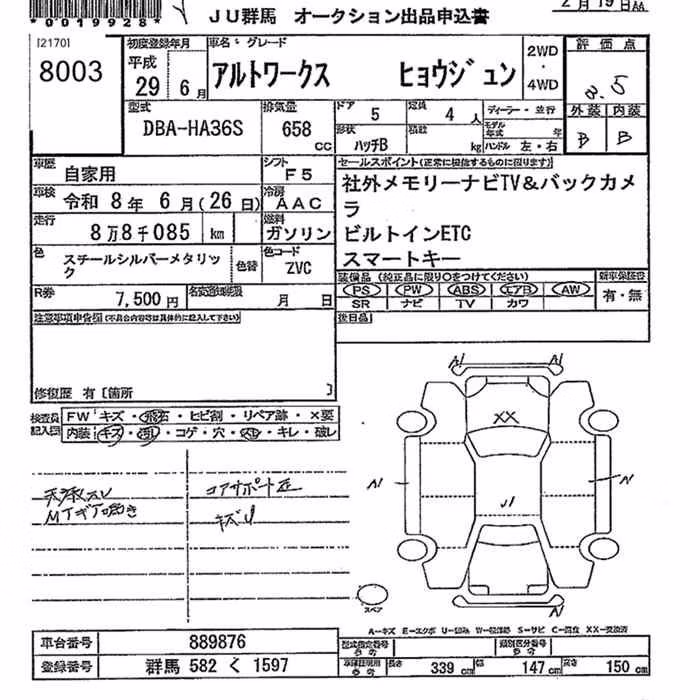 *0019928*
JU群馬 オークション出品申込書
2月19日AA
[2170]
8003
初度登録年月
車名・グレード
平成
29 6月
アルトワークス ヒョウジュン
2WD
・
4WD
評価点
3.5
外装 内装
B B
型式
DBA-HA36S
排気量
658
CC
ドア 5
定員 4 人
ディーラー・並行
形状 ハッチB
積載 kg
モデル年式 年
ハンドル 左・右
車歴 自家用
シフト F5
車検 令和 8年 6月(26日)
冷房 AAC
走行 8万8千085 km
燃料 ガソリン
色 スチールシルバーメタリック
色替
色コード ZVC
R券 7,500円
名義変更期限 月 日
セールスポイント(正常に機能するものに限ります)
社外メモリーナビTV&バックカメ
ラ
ビルトインETC
スマートキー
装備品 (純正品に限り○をつけてください)
新車保証書
PS PW ABS エアB AW
有・無
SR ナビ TV カワ
後日品
注意事項申告欄(不具合内容等は具体的に記入して下さい)
修復歴 有〔箇所 〕
検査員
記入欄
FW キズ・飛石・ヒビ割・リペア跡・×要
内装 キズ・汚れ・コゲ・穴・スレ・キレ・破レ
MTギア鳴き
コアサポート
A1 A1
XX
A1 A1
J1
A1
スペア
A-キズ E-エクボ U-凹み W-板跡等 S-サビ C-腐食 XX-交換済
車台番号 889876
登録番号 群馬 582 く 1597
型式指定番号
参考
類別区分番号
参考
車検証明用
参考
長さ 339 cm
幅 147 cm
高さ 150 cm